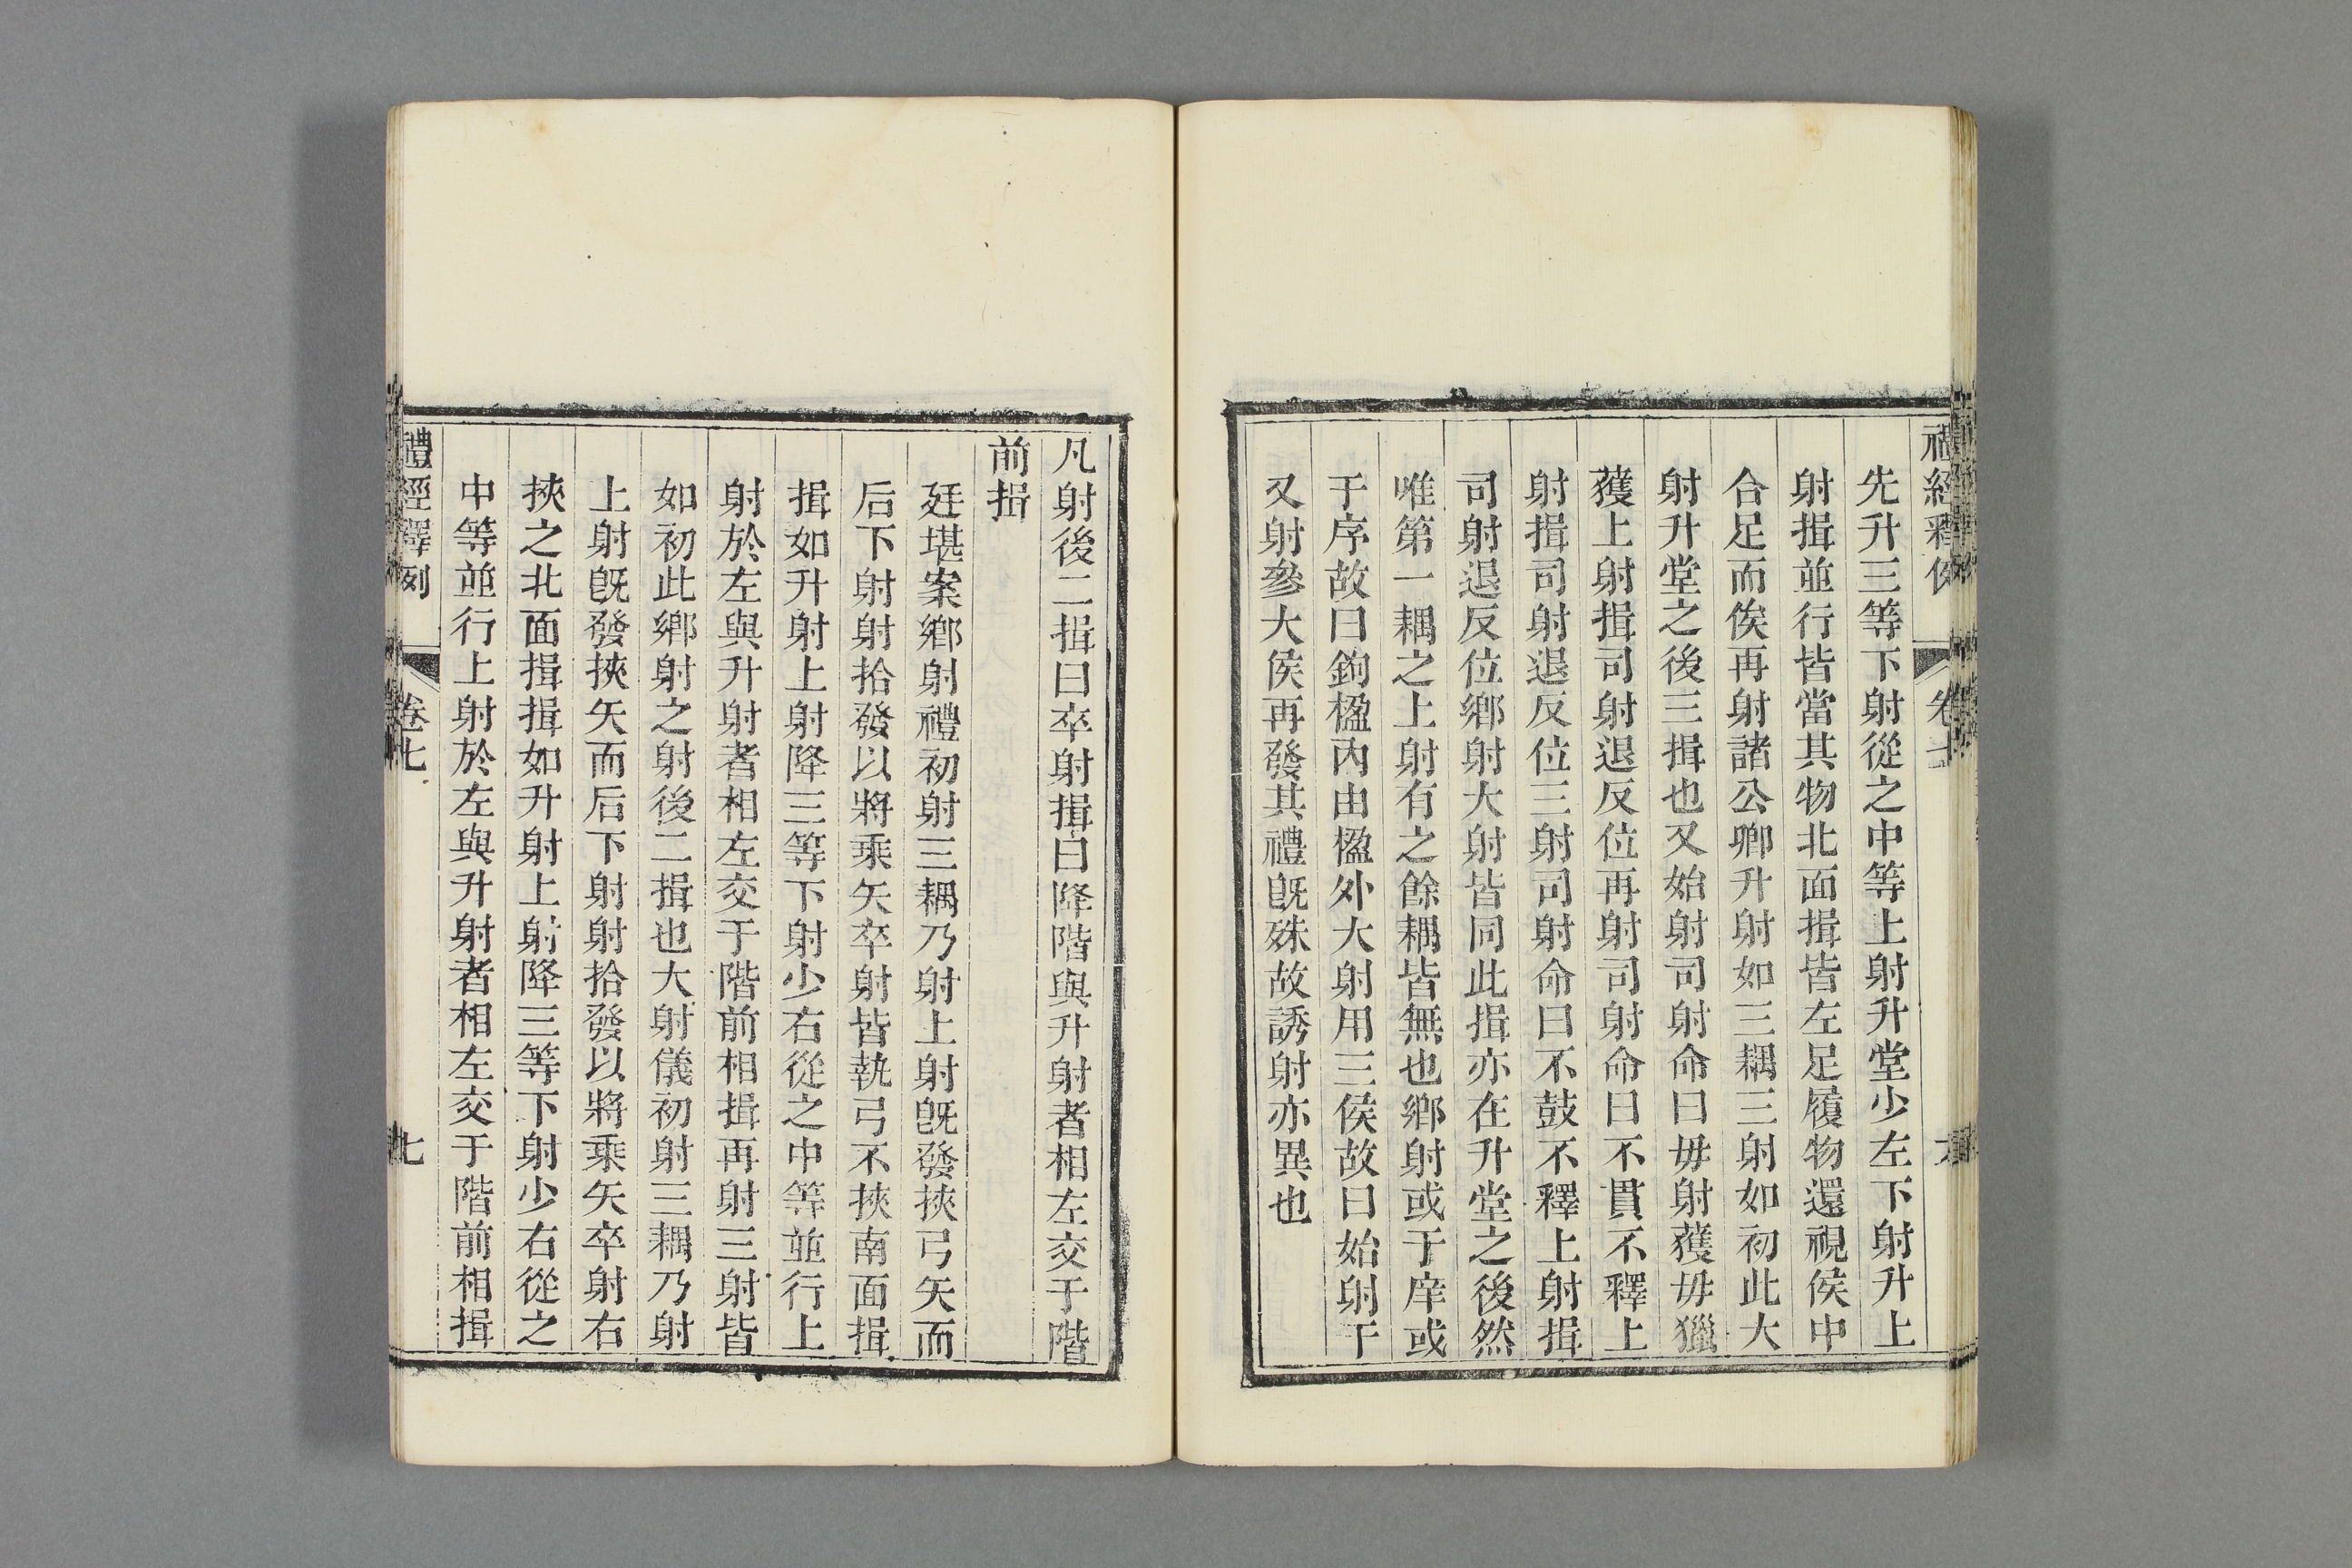 禮經釋例 卷七 六
先升三等下射從之中等上射升堂少左下射升上
射揖並行皆當其物北面揖皆左足履物還視侯中
合足而俟再射諸公卿升射如三耦三射如初此大
射升堂之後三揖也又始射司射命曰毋射獲毋獵
獲上射揖司射退反位再射司射命曰不貫不釋上
射揖司射退反位三射司射命曰不鼓不釋上射揖
司射退反位鄉射大射皆同此揖亦在升堂之後然
唯第一耦之上射有之餘耦皆無也鄉射或于庠或
于序故曰鉤楹內由楹外大射用三侯故曰始射干
又射參大侯再發其禮旣殊故誘射亦異也
凡射後二揖曰卒射揖曰降階與升射者相左交于階
前揖
廷堪案鄉射禮初射三耦乃射上射旣發挾弓矢而
后下射射拾發以將乘矢卒射皆執弓不挾南面揖
揖如升射上射降三等下射少右從之中等並行上
射於左與升射者相左交于階前相揖再射三射皆
如初此鄉射之射後二揖也大射儀初射三耦乃射
上射旣發挾矢而后下射射拾發以將乘矢卒射右
挾之北面揖揖如升射上射降三等下射少右從之
中等並行上射於左與升射者相左交于階前相揖
禮經釋例 卷七 七